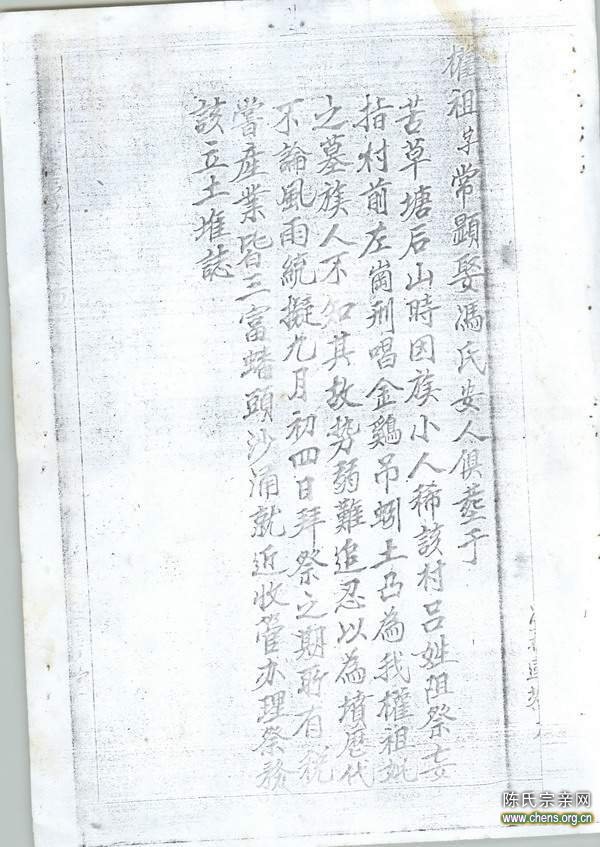 權祖字常顕娶馮氏安人俱葬于
苦草塘后山時因族小人稀該村吕姓阻祭妄
指村前左崗形唱金鷄吊蚓土凸為我權祖妣
之墓族人不知其故势弱難追忍以為墳歷代
不論風雨統擬九月初四日拜祭之期所有税
嘗産業皆三富蟠頭沙涌就近收管办理祭務
該立土堆誌
陈氏宗亲网
www.chens.org.cn